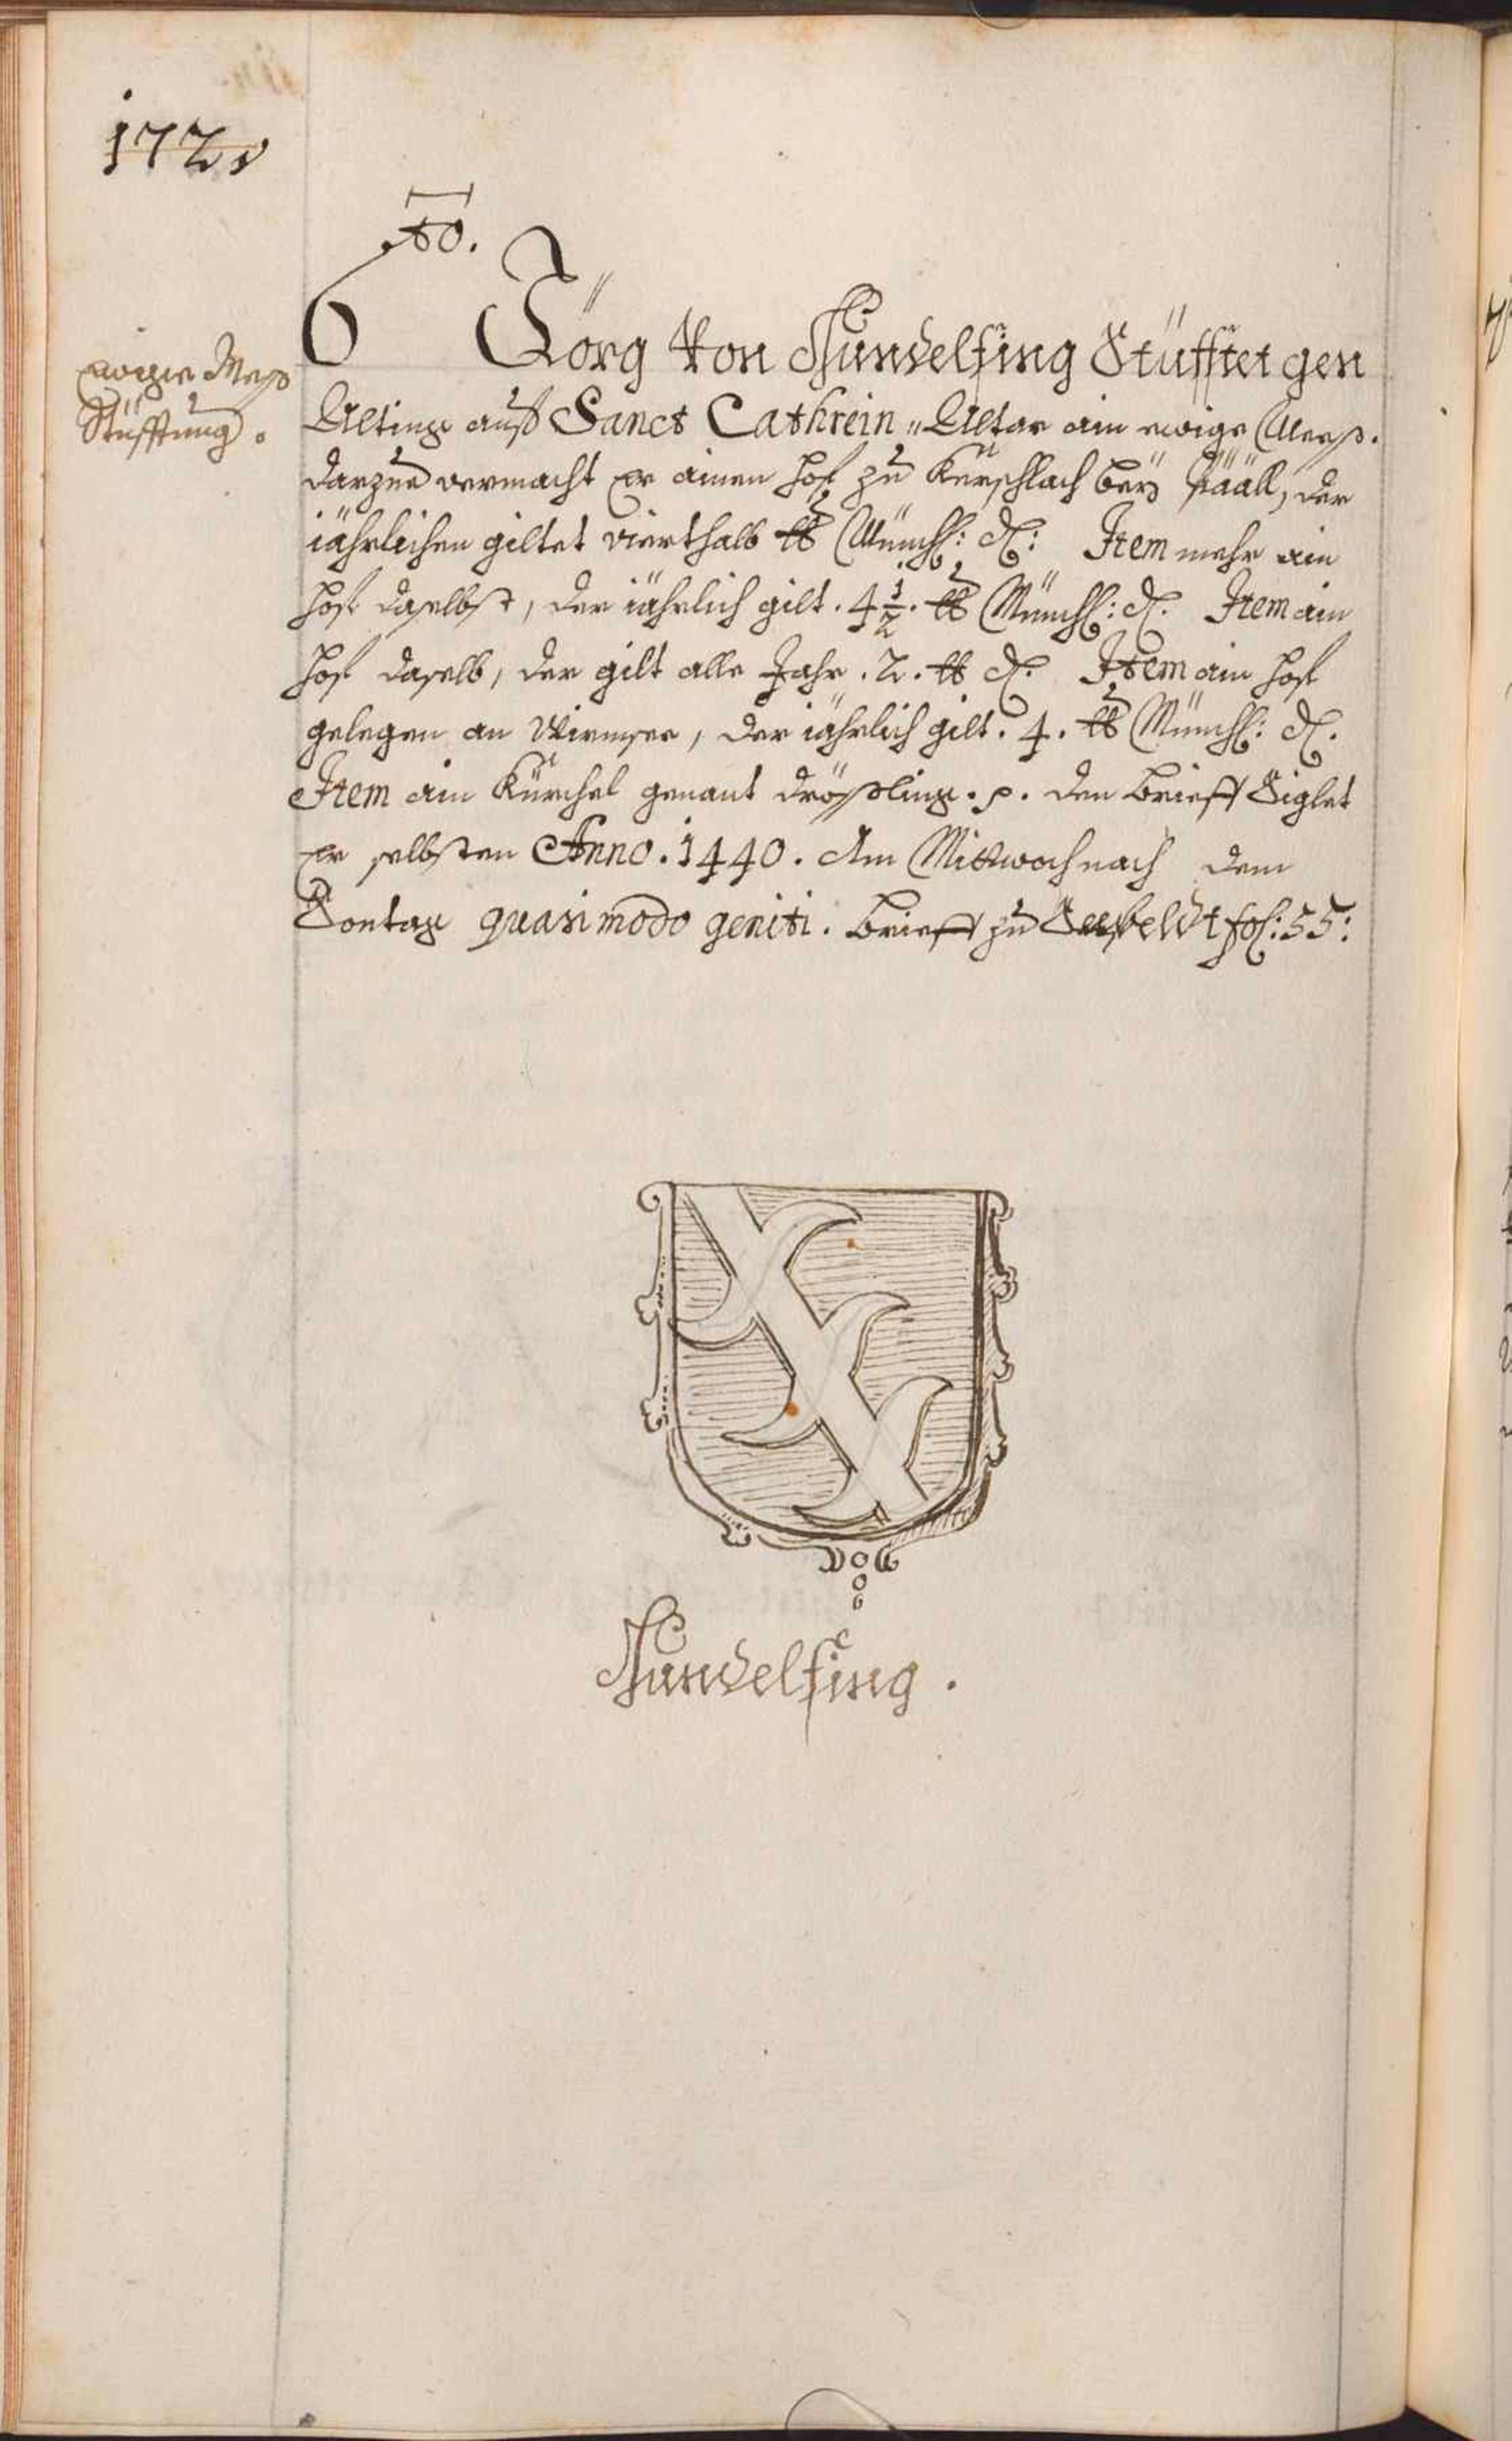 172v
6to.
Jörg Von Hundelfing Stüfftet gen
ewige Mess
Stüfftung.
Alting auff Sanct Cathrein Altar ain ewige Mess.
darzue vermacht er ainen hof zu Kerschlach bey Pääll, der
iährlichen giltet vierthalb lb Münch: d: Item mehr ain
hof daselbst, der iährlich gilt. 4 1/2. lb Münch: d. Item ain
hof daselb, der gilt alle Jahr. 2. lb d. Item ain hof
gelegen an Wirmsee, der iährlich gilt. 4. lb Münch: d.
Item ain Kürchel genant drössling. p. den brieff Siglet
er selbsten Anno. 1440. Am Mittwoch nach dem
Sontag quasimodo geniti. brieff zu Seefeldt fol: 55:
Hundelfing.